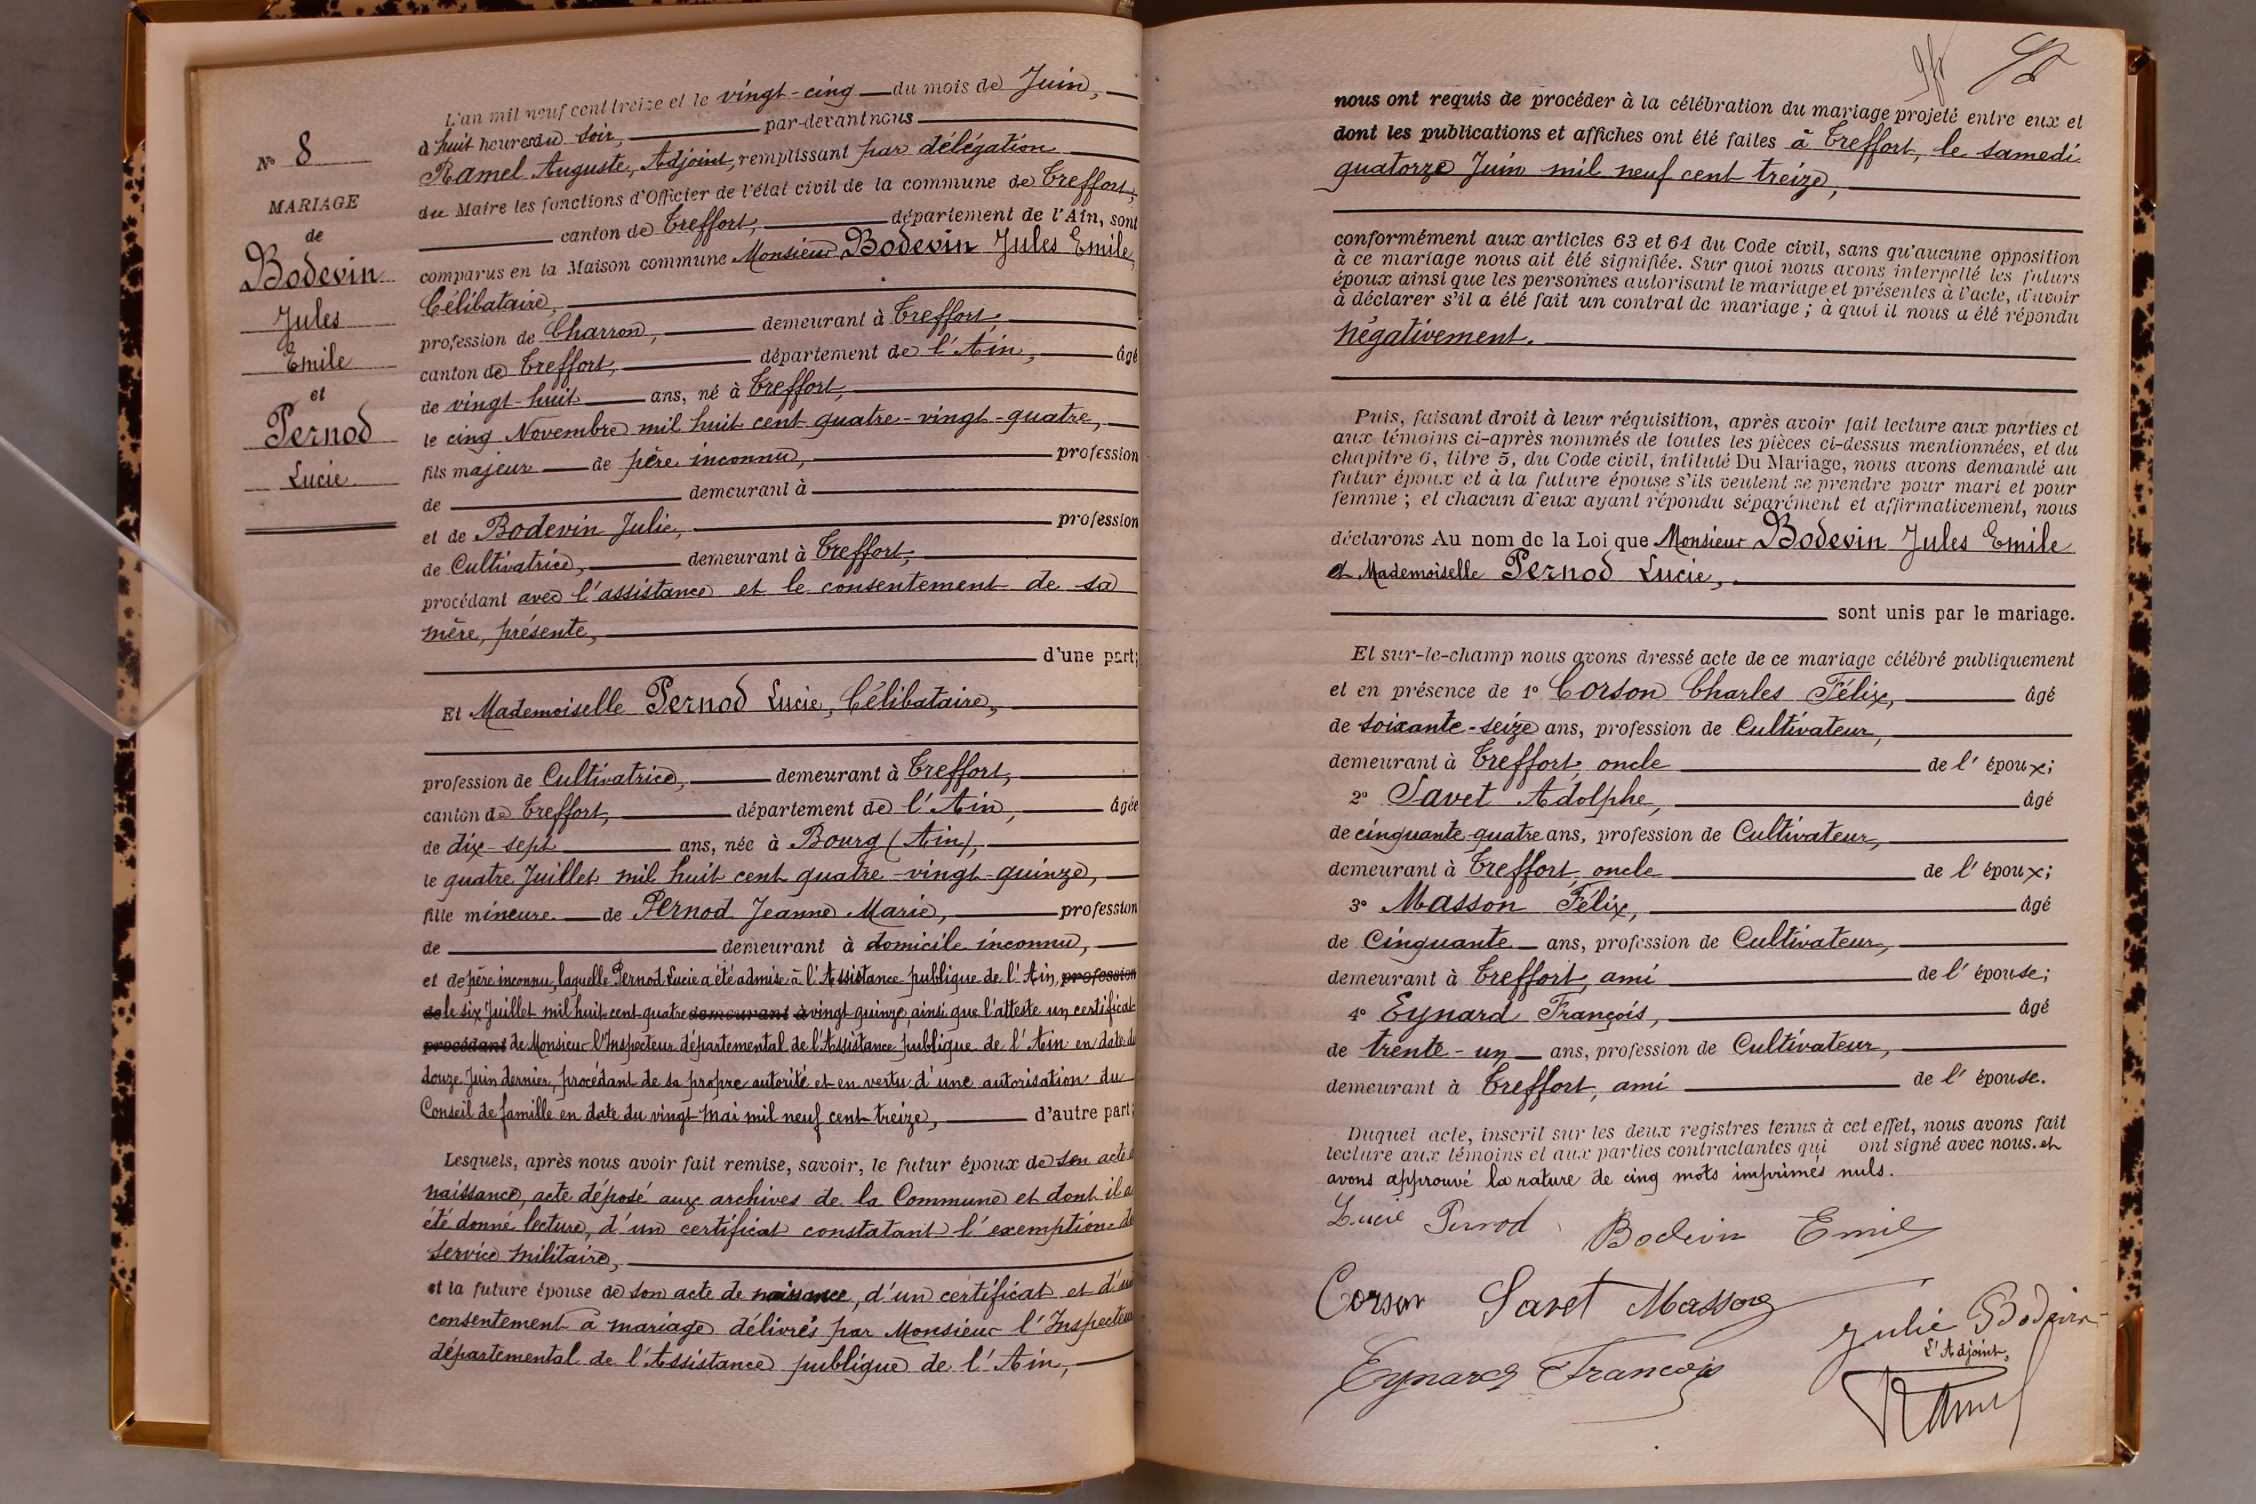 N° 8
MARIAGE
de
Bodevin
Jules
Emile
et
Pernod
Lucie
L'an mil neuf cent treize et le vingt-cinq du mois de Juin,
à huit heures du soir, par-devant nous
Ramel Auguste, Adjoint, remplissant par délégation
du Maire les fonctions d'Officier de l'état civil de la commune de Treffort,
canton de Treffort, département de l'Ain, sont
comparus en la Maison commune Monsieur Bodevin Jules Emile,
Célibataire,
profession de Charron, demeurant à Treffort,
canton de Treffort, département de l'Ain, âgé
de vingt-huit ans, né à Treffort,
le cinq Novembre mil huit cent quatre-vingt-quatre,
fils majeur de père inconnu, profession
de demeurant à
et de Bodevin Julie, profession
de Cultivatrice, demeurant à Treffort,
procédant avec l'assistance et le consentement de sa
mère, présente,
d'une part;
Et Mademoiselle Pernod Lucie, Célibataire,
profession de Cultivatrice, demeurant à Treffort,
canton de Treffort, département de l'Ain, âgée
de dix-sept ans, née à Bourg (Ain),
le quatre Juillet mil huit cent quatre-vingt-quinze,
fille mineure de Pernod Jeanne Marie, profession
de demeurant à domicile inconnu,
et de père inconnu, laquelle Pernod Lucie a été admise à l'Assistance publique de l'Ain, profession
de le six Juillet mil huit cent quatre demeurant à vingt quinze, ainsi que l'atteste un certificat
procédant de Monsieur l'Inspecteur départemental de l'Assistance publique de l'Ain en date du
douze Juin dernier, procédant de sa propre autorité et en vertu d'une autorisation du
Conseil de famille en date du vingt Mai mil neuf cent treize, d'autre part;
Lesquels, après nous avoir fait remise, savoir, le futur époux de son acte de
naissance, acte déposé aux archives de la Commune et dont il a
été donné lecture, d'un certificat constatant l'exemption de
service militaire,
et la future épouse de son acte de naissance, d'un certificat et d'un
consentement à mariage délivrés par Monsieur l'Inspecteur
départemental de l'Assistance publique de l'Ain,
nous ont requis de procéder à la célébration du mariage projeté entre eux et
dont les publications et affiches ont été faites à Treffort, le samedi
quatorze Juin mil neuf cent treize,
conformément aux articles 63 et 64 du Code civil, sans qu'aucune opposition
à ce mariage nous ait été signifiée. Sur quoi nous avons interpellé les futurs
époux ainsi que les personnes autorisant le mariage et présentes à l'acte, d'avoir
à déclarer s'il a été fait un contrat de mariage ; à quoi il nous a été répondu
négativement.
Puis, faisant droit à leur réquisition, après avoir fait lecture aux parties et
aux témoins ci-après nommés de toutes les pièces ci-dessus mentionnées, et du
chapitre 6, titre 5, du Code civil, intitulé Du Mariage, nous avons demandé au
futur époux et à la future épouse s'ils veulent se prendre pour mari et pour
femme ; et chacun d'eux ayant répondu séparément et affirmativement, nous
déclarons Au nom de la Loi que Monsieur Bodevin Jules Emile
et Mademoiselle Pernod Lucie,
sont unis par le mariage.
Et sur-le-champ nous avons dressé acte de ce mariage célébré publiquement
et en présence de 1° Corson Charles Félix, âgé
de soixante-seize ans, profession de Cultivateur,
demeurant à Treffort, oncle de l'époux;
2° Savet Adolphe, âgé
de cinquante quatre ans, profession de Cultivateur,
demeurant à Treffort, oncle de l'époux;
3° Masson Félix, âgé
de Cinquante ans, profession de Cultivateur,
demeurant à Treffort, ami de l'épouse;
4° Eynard François, âgé
de trente-un ans, profession de Cultivateur,
demeurant à Treffort, ami de l'épouse.
Duquel acte, inscrit sur les deux registres tenus à cet effet, nous avons fait
lecture aux témoins et aux parties contractantes qui ont signé avec nous. et
avons approuvé la rature de cinq mots imprimés nuls.
Lucie Pernod Bodevin Emile
Corson Savet Masson
Julie Bodevin
L'Adjoint,
Eynard François
Ramel